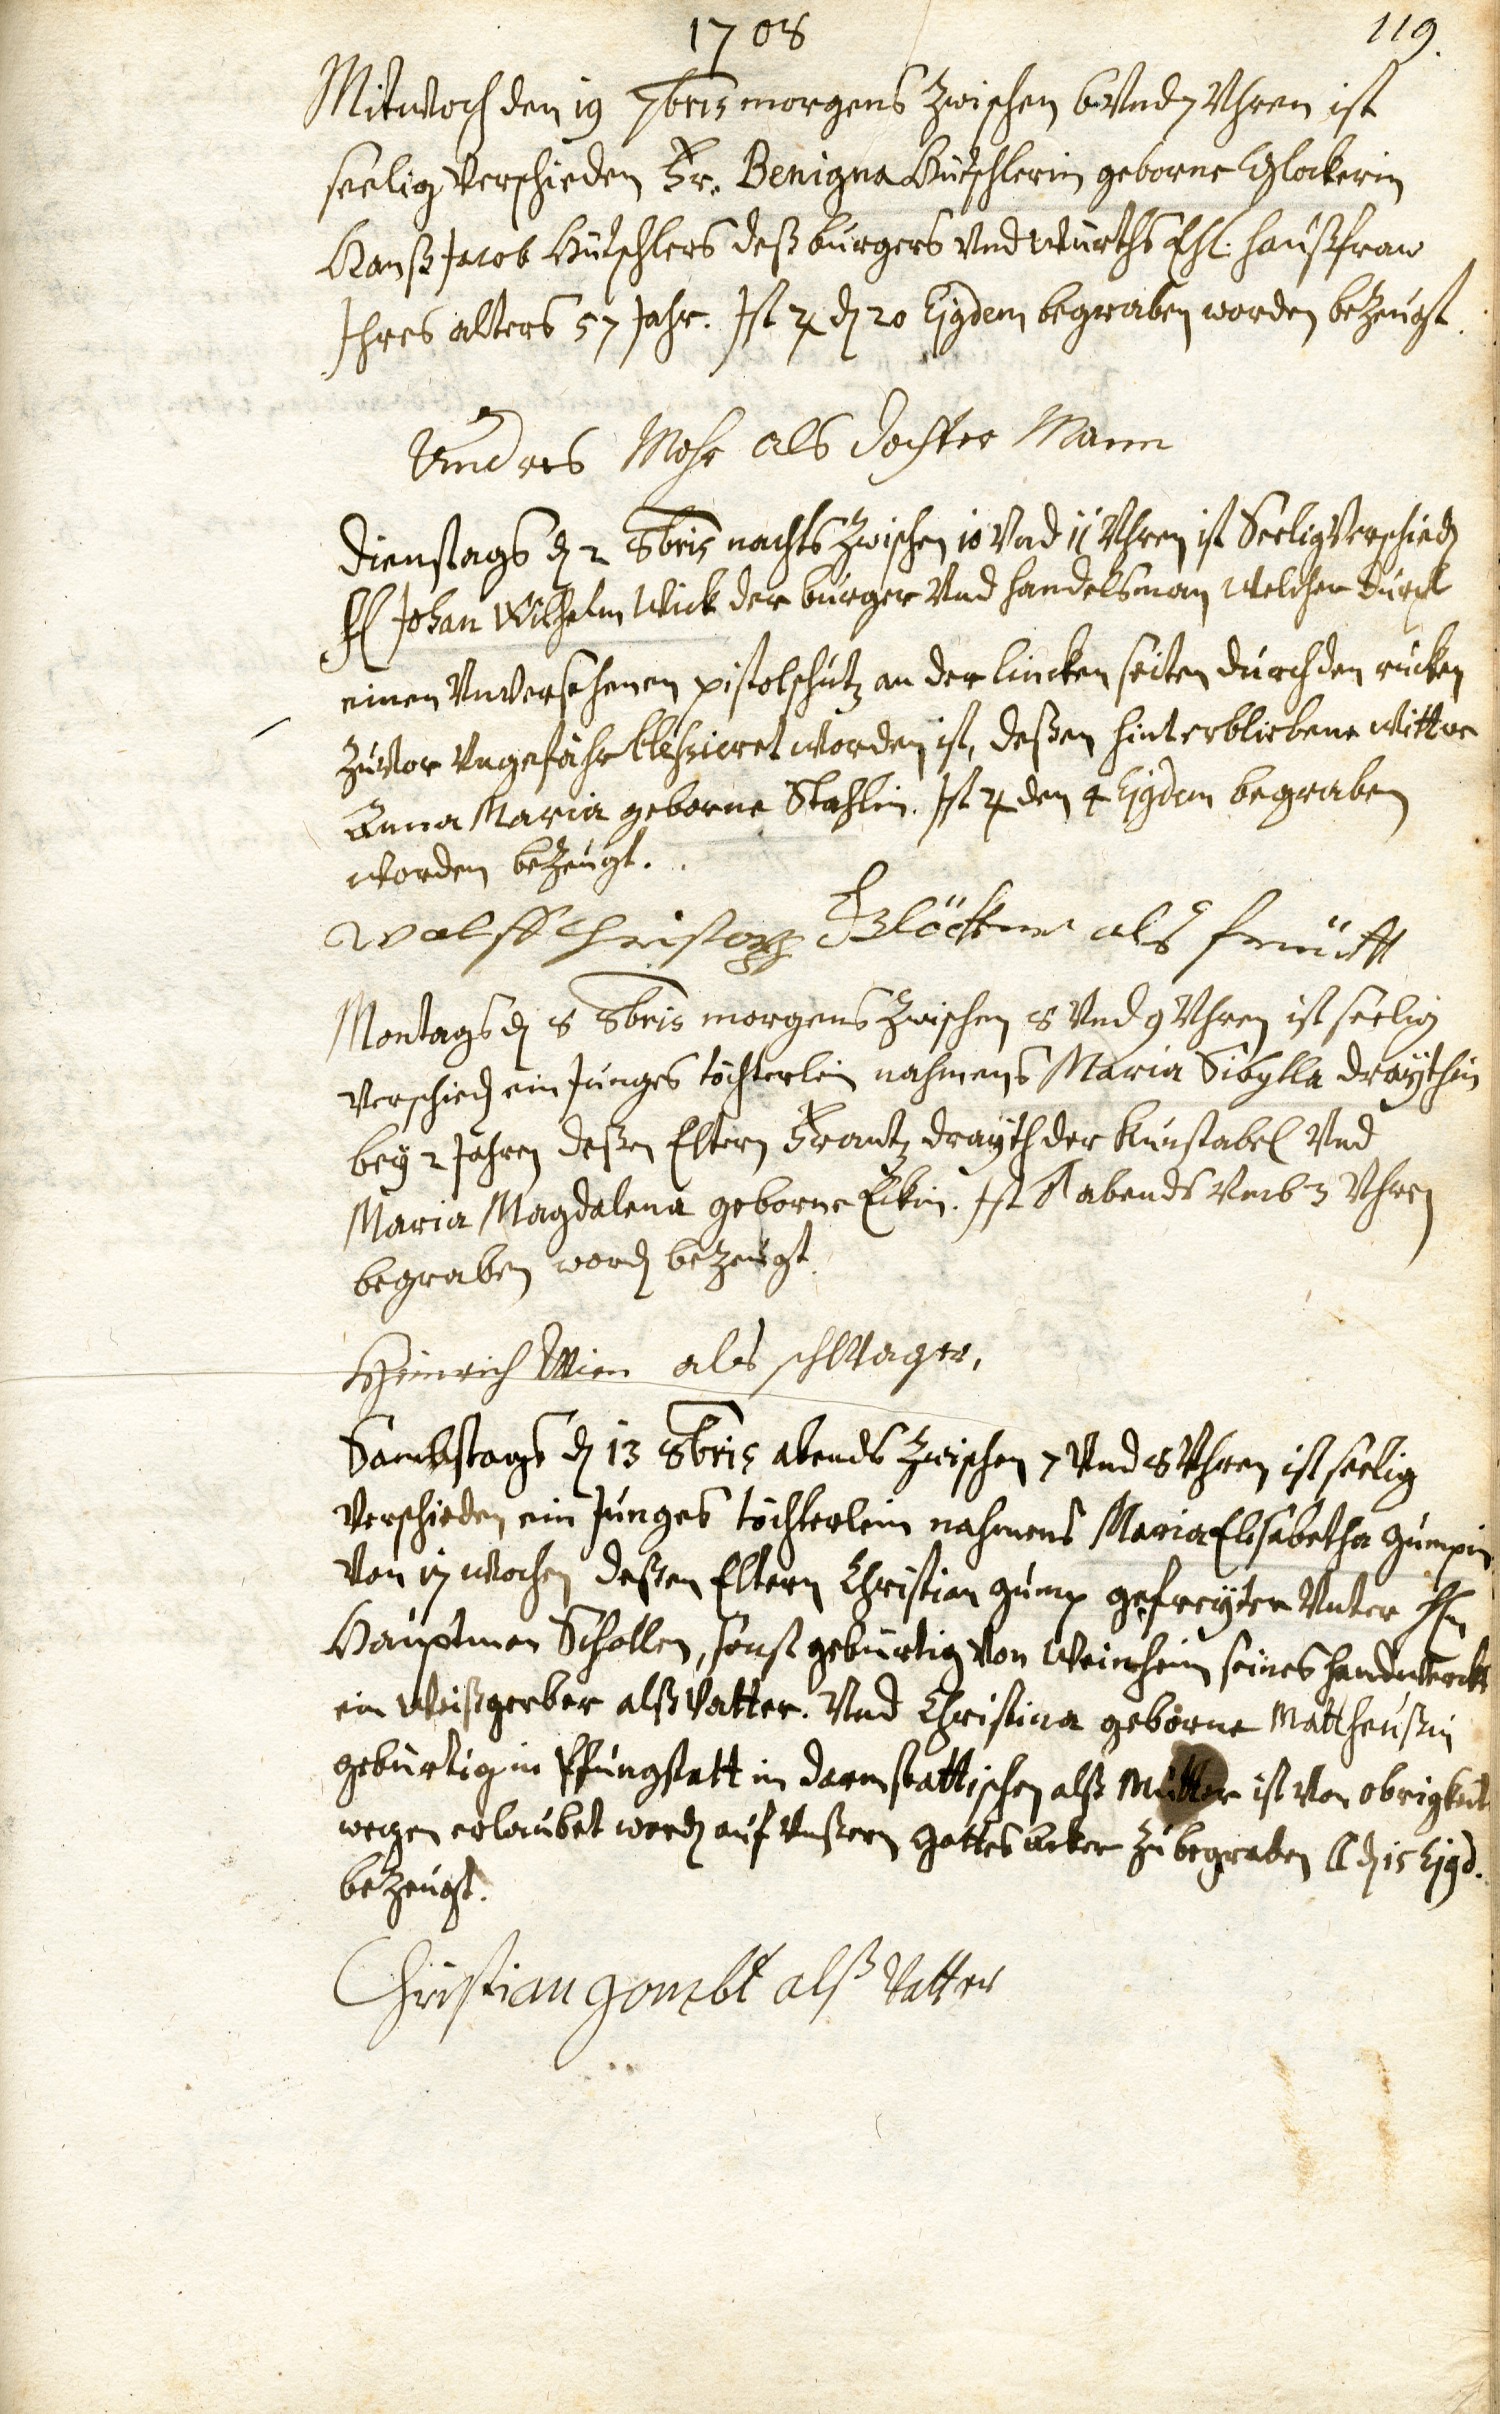 1708
119.
Mitwoch den 19 7bris morgens zwischen 6 Und 7 Uhren ist
seelig Verschieden Fr. Benigna Hütschlerin geborne Glockerin
Hanß Jacob Hütschlers deß burgers Und Würths Ehl. haußfraw
Ihres alters 57 Jahr. Ist ♃ dē 20 Ejgdem begraben worden bezeugt.
Andres Mohr als dochter Mann
Dienstags dē 2 8bris nachts zwischen 10 Und 11 Uhren ist Seelig Verschiedē
H Johan Wilhelm Wick der burger Und handelsman Welcher durch
einen Unversehenen pistolschutz an der lincken seiten durch den rucken
zuvor Ungefähr blessieret worden ist, deßen hinterbliebene Wittwe
Anna Maria geborne Stahlin. Ist ♃ den 4 Ejgdem begraben
worden bezeugt.
Wolff Christoph als freündt
Montags dē 8 8bris morgens zwischen 8 Und 9 Uhren ist seelig
Verschiedē ein Junges töchterlein nahmens Maria Sibylla Draÿthin
beÿ 2 Jahren deßen Eltern Frantz Draÿth der Kunstabel Und
Maria Magdalena geborne Eckin. Ist abends Umb 3 Uhren
begraben wordē bezeugt.
Heinrich Wien als schwager,
Sambstags dē 13 8bris abends zwischen 7 Und 8 Uhren ist seelig
Verschieden ein Junges töchterlein nahmens Maria Elisabetha Gumpin
Von 17 wochen deßen Eltern Christian Gump gefreÿter Unter Hn
Hauptman Schollen, sonst gebürtig Von Weinheim seines handwercks
ein Weißgerber alß Vatter. Und Christina geborne Mattheußin
gebürtig in Pfungstatt im darmstattischen alß Mutter ist Von obrigkeit
wegen erlaubet wordē auf Unßern Gottes Acker zu begraben dē 15 Ejgd.
bezeugt.
Christian gombt alß Vatter